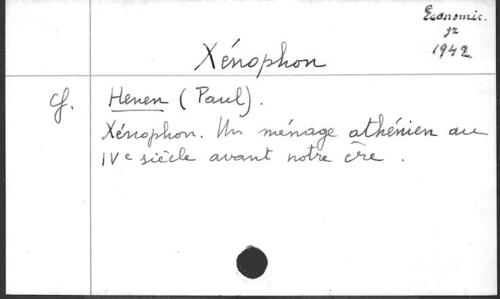 Economic.
gr
1942
Xénophon
cf. Henen (Paul).
Xénophon. Un ménage athénien au
IVe siècle avant notre ère.